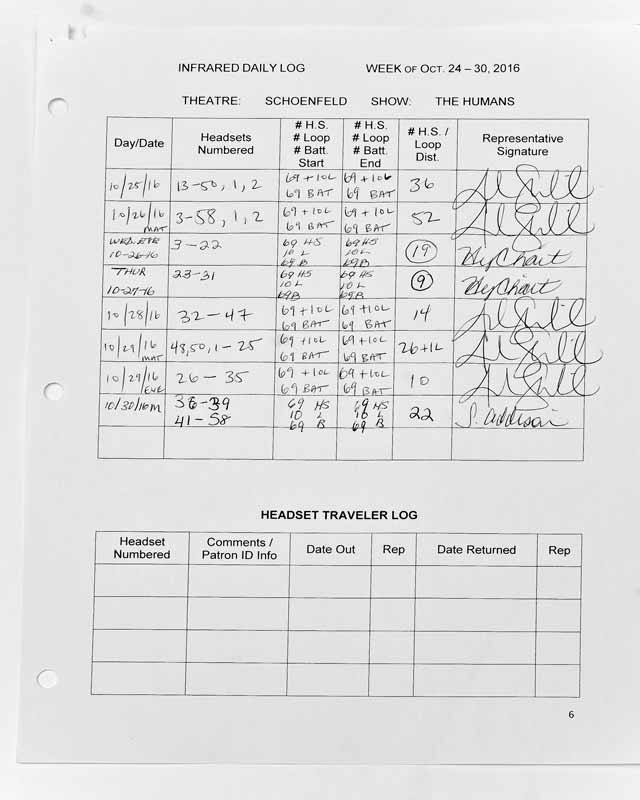 INFRARED DAILY LOG WEEK OF OCT. 24 – 30, 2016
THEATRE: SCHOENFELD SHOW: THE HUMANS
Day/Date Headsets Numbered # H.S. # Loop # Batt. Start # H.S. # Loop # Batt. End # H.S. / Loop Dist. Representative Signature
10/25/16 13-50, 1, 2 69 + 10L 69 BAT 69 + 10L 69 BAT 36
10/26/16 MAT 3-58, 1, 2 69 + 10L 69 BAT 69 + 10L 69 BAT 52
WED. EVE 10-26-16 3-22 69 HS 10 L 69 B 69 HS 10 L 69 B 19
THUR 10-27-16 23-31 69 HS 10 L 69 B 69 HS 10 L 69 B 9
10/28/16 32-47 69 + 10L 69 BAT 69 + 10L 69 BAT 14
10/29/16 MAT 48, 50, 1-25 69 + 10L 69 BAT 69 + 10L 69 BAT 26+1L
10/29/16 EVE 26-35 69 + 10L 69 BAT 69 + 10L 69 BAT 10
10/30/16 M 36-39 41-58 69 HS 10 L 69 B 69 HS 10 L 69 B 22 S. Addison
HEADSET TRAVELER LOG
Headset Numbered Comments / Patron ID Info Date Out Rep Date Returned Rep
6